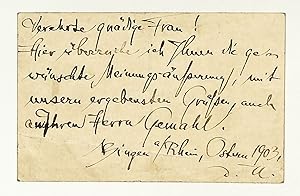 Verehrte gnädige Frau!
Hier übersende ich Ihnen die gewünschte
wünschte Meinungsäusserung, mit
unsern ergebensten Grüßen, auch
an Ihren Herrn Gemahl.
Bingen a/Rhein, Ostern 1903,